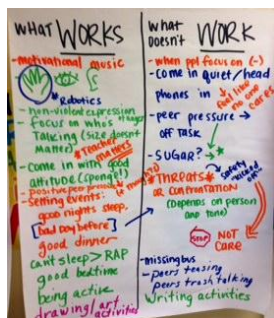 WHAT WORKS
- motivational music
* Robotics
- non-violent expression
- focus on who's
Talking (size doesn't
Matter)
* Teacher
matters
- Come in with good
attitude (sponge!)
- positive peer
- Setting events:
good nights sleep.
[bad day before]
good dinner
can't sleep > RAP
good bedtime
being active
drawing/art
activities
What
doesn't WORK
- when ppl focus on (-)
- Come in quiet/head
phones in
feel like
no one
cares
- peer pressure →
off task
- SUGAR?
* THREATS
or CONFRONTATION
(Depends on person
and tone)
Safety
NOT
CARE
- missing bus
- peers teasing
peers trash talking
Writing activities